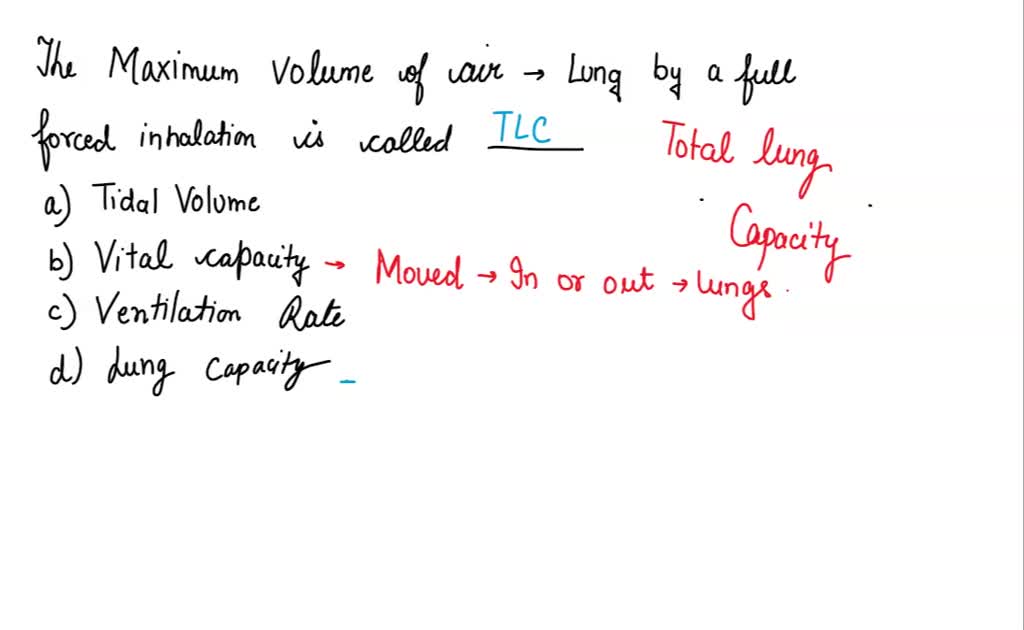 The Maximum Volume of air → Lung by a full
forced inhalation is called TLC
Total lung
Capacity
a) Tidal Volume
b) Vital capacity → Moved → In or out → lungs.
c) Ventilation Rate
d) Lung Capacity –